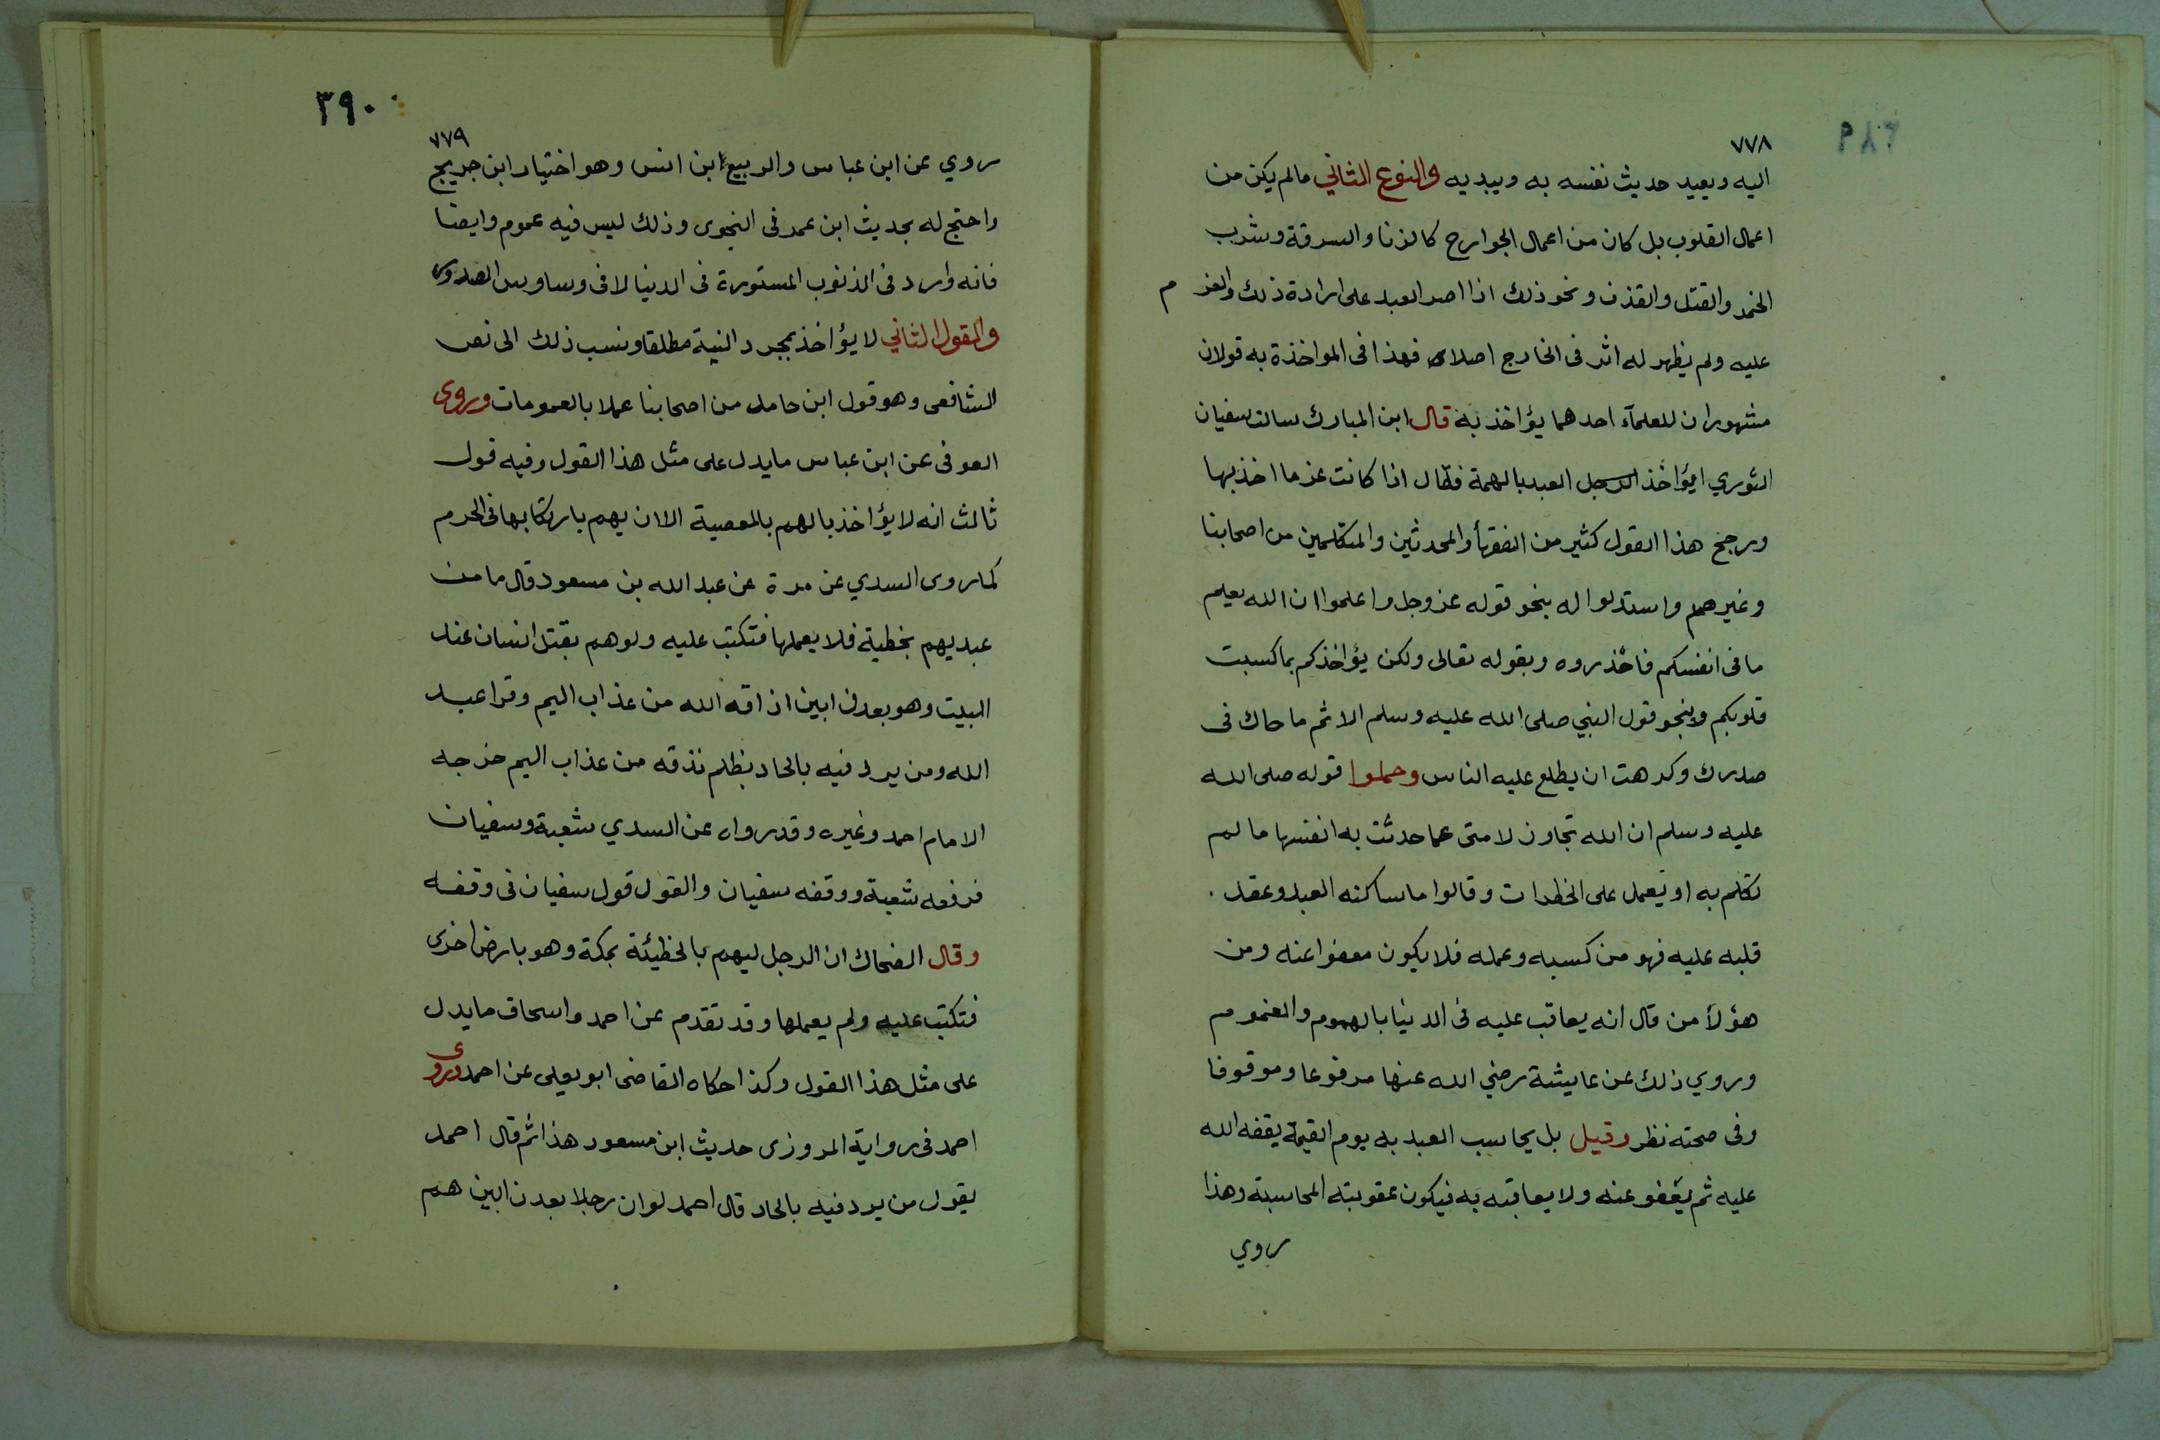 ٧٧٨
اليه ويعيد حديث نفسه به ويبديه والنوع الثاني مالم يكن من
اعمال القلوب بل كان من اعمال الجوارح كالزنا والسرقة وشرب
الخمر والقتل والقذف ونحو ذلك اذا اصر العبد على ارادة ذلك والعزم
عليه ولم يظهر له اثر في الخارج اصلا فهذا في المواخذة به قولان
مشهوران للعلمآء احدهما يؤاخذ به قال ابن المبارك سالت سفيان
الثوري ايؤاخذ العبد بالهمة فقال اذا كانت عزما اخذ بها
ورجح هذا القول كثير من الفقهأ والمحدثين والمتكلمين من اصحابنا
وغيرهم واستدلوا له بنحو قوله عز وجل واعلموا ان الله يعلم
ما في انفسكم فاحذروه وبقوله تعالى ولكن يؤاخذكم بما كسبت
قلوبكم وبنحو قول النبي صلى الله عليه وسلم الاثم ما حاك في
صدرك وكرهت ان يطلع عليه الناس وحملوا قوله صلى الله
عليه وسلم ان الله تجاوز لامتى عما حدثت به انفسها ما لم
تكلم به او تعمل على الخطرات وقالوا ما ساكنه العبد وعقد
قلبه عليه فهو من كسبه وعمله فلا يكون معفوا عنه ومن
هؤلأ من قال انه يعاقب عليه في الدنيا بالهموم والغموم
وروي ذلك عن عايشة رضي الله عنها مرفوعا وموقوفا
وفي صحته نظر وقيل بل يحاسب العبد به يوم القيمة يقفه الله
عليه ثم يعفو عنه ولا يعاقبه به فيكون عقوبته المحاسبة وهذا
روي
٣٩٠
٧٧٩
روي عن ابن عباس والربيع ابن انس وهو اختيار ابن جريج
واحتج له بحديث ابن عمر في النجوى وذلك ليس فيه عموم وايضا
فانه وارد في الذنوب المستورة في الدنيا لا في وساوس الصدور
والقول الثاني لا يؤاخذ بمجرد النية مطلقا ونسب ذلك الى نص
الشافعي وهو قول ابن حامد من اصحابنا عملا بالعمومات وروى
العوفي عن ابن عباس ما يدل على مثل هذا القول وفيه قول
ثالث انه لا يؤاخذ بالهم بالمعصية الا ان يهم بارتكابها في الحرم
كما روى السدي عن مرة عن عبد الله بن مسعود قال ما من
عبد يهم بخطية فلا يعملها فتكتب عليه ولو هم بقتل انسان عند
البيت وهو بعدن ابين اذاقه الله من عذاب اليم وقرا عبد
الله ومن يرد فيه بالحاد بظلم نذقه من عذاب اليم خرجه
الامام احمد وغيره وقد رواه عن السدي شعبة وسفيان
فرفعه شعبة ووقفه سفيان والقول قول سفيان في وقفه
وقال الضحاك ان الرجل ليهم بالخطيئة بمكة وهو بارض اخرى
فتكتب عليه ولم يعملها وقد تقدم عن احمد واسحاق ما يدل
على مثل هذا القول وكذا حكاه القاضي ابو يعلى عن احمد وروى
احمد في رواية المروزي حديث ابن مسعود هذا ثم قال احمد
يقول من يرد فيه بالحاد قال احمد لو ان رجلا بعدن ابين هم